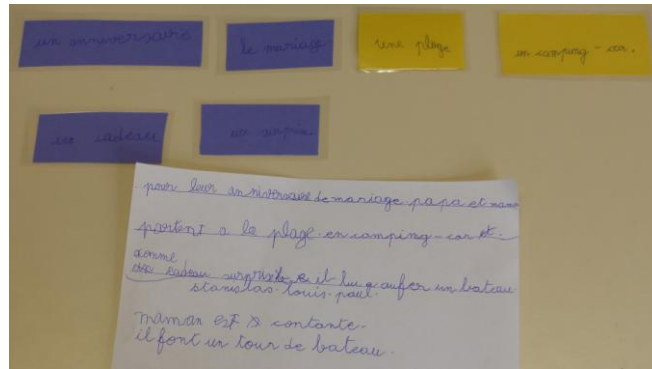 un anniversaire
le mariage
une plage
un camping-car.
un cadeau
une surprise.
pour leur anniversaire de mariage papa et mama
partent a la plage en camping-car et.
donne
cadeau surprise il lui a aufer un bateau
stanislas. louis. paul.
maman est contante.
il font un tour de bateau.